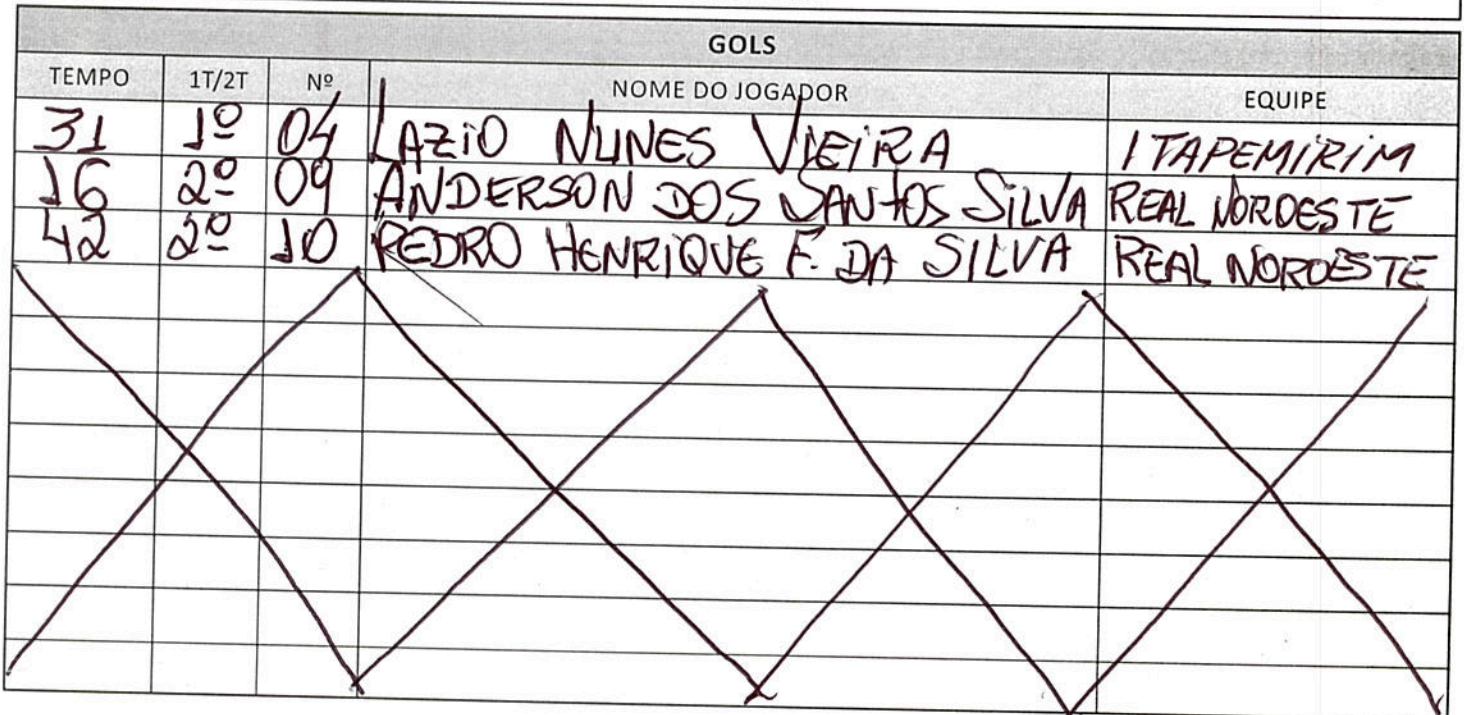 GOLS
TEMPO 1T/2T Nº NOME DO JOGADOR EQUIPE
31 1º 04 LAZIO NUNES VIEIRA ITAPEMIRIM
16 2º 09 ANDERSON DOS SANTOS SILVA REAL NOROESTE
42 2º 10 PEDRO HENRIQUE F. DA SILVA REAL NOROESTE